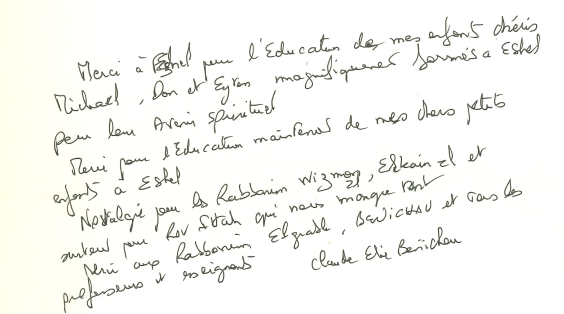 Merci à Eshel pour l'Education des mes enfants chéris
Michael, Dan et Eytan magnifiquement formés à Eshel
pour leur Avenir spirituel
Merci pour l'Education maintenant de mes chers petits
enfants à Eshel
Nostalgie pour les Rabbanim Wizman, Elkaim zl et
surtout pour Rav Sitah qui nous manque tant
Merci aux Rabbanim Elgrably, BENICHOU et tous les
professeurs et enseignants
Claude Elie Benichou